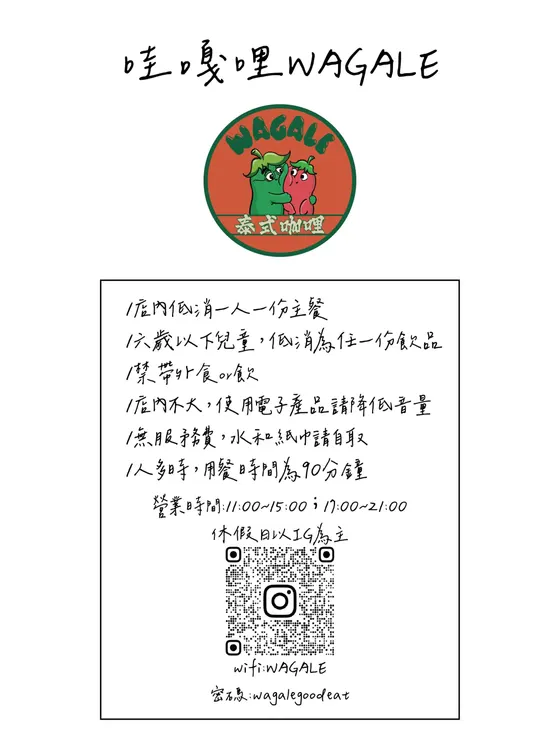 哇嘎哩WAGALE
WAGALE
泰式咖哩
/店內低消一人一份主餐
/六歲以下兒童,低消為任一份飲品
/禁帶外食or飲
/店內不大,使用電子產品請降低音量
/無服務費,水和紙巾請自取
/人多時,用餐時間為90分鐘
營業時間:11:00~15:00;17:00~21:00
休假日以IG為主
wifi:WAGALE
密碼:wagalegoodeat